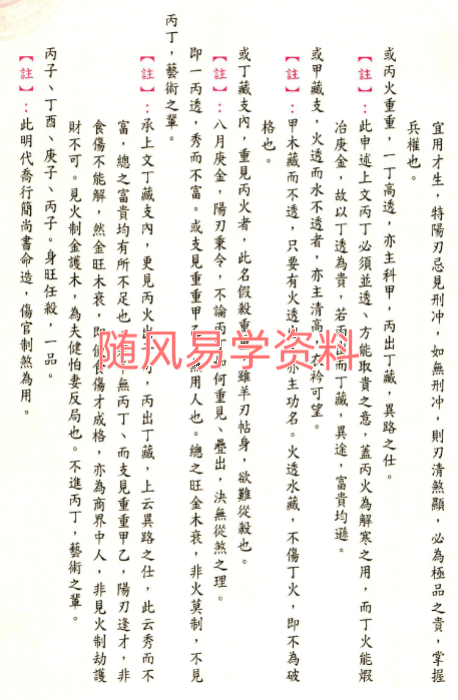 宜用才生，特陽刃忌見刑冲，如無刑冲，則刃清煞顯，必為極品之貴，掌握
兵權也。
或丙火重重，一丁高透，亦主科甲，丙出丁藏，異路之仕。
【註】：此申述上文丙丁必須並透、方能取貴之意，蓋丙火為解寒之用，而丁火能煅
冶庚金，故以丁透為貴，若丙出而丁藏，異途，富貴均遜。
或甲藏支，火透而水不透者，亦主清高，衣衿可望。
【註】：甲木藏而不透，只要有火透出，亦主功名。火透水藏，不傷丁火，即不為破
格也。
或丁藏支內，重見丙火者，此名假殺重重，雖羊刃帖身，欲難從殺也。
【註】：八月庚金，陽刃秉令，不論丙丁如何重見、疊出，決無從煞之理。
即一丙透，秀而不富。或支見重重甲乙，無用人也。總之旺金木衰，非火莫制，不見
丙丁，藝術之輩。
【註】：承上文丁藏支內，更見丙火出干，丙出丁藏，上云異路之仕，此云秀而不
富，總之富貴均有所不足也。無丙丁、而支見重重甲乙，陽刃逢才，非
食傷不能解，然金旺木衰，即使食傷才成格，亦為商界中人，非見火制劫護
財不可。見火制金護木，為夫健怕妻反局也。不進丙丁，藝術之輩。
丙子、丁酉、庚子、丙子。身旺任殺，一品。
【註】：此明代喬行簡尚書命造，傷官制煞為用。
随风易学资料